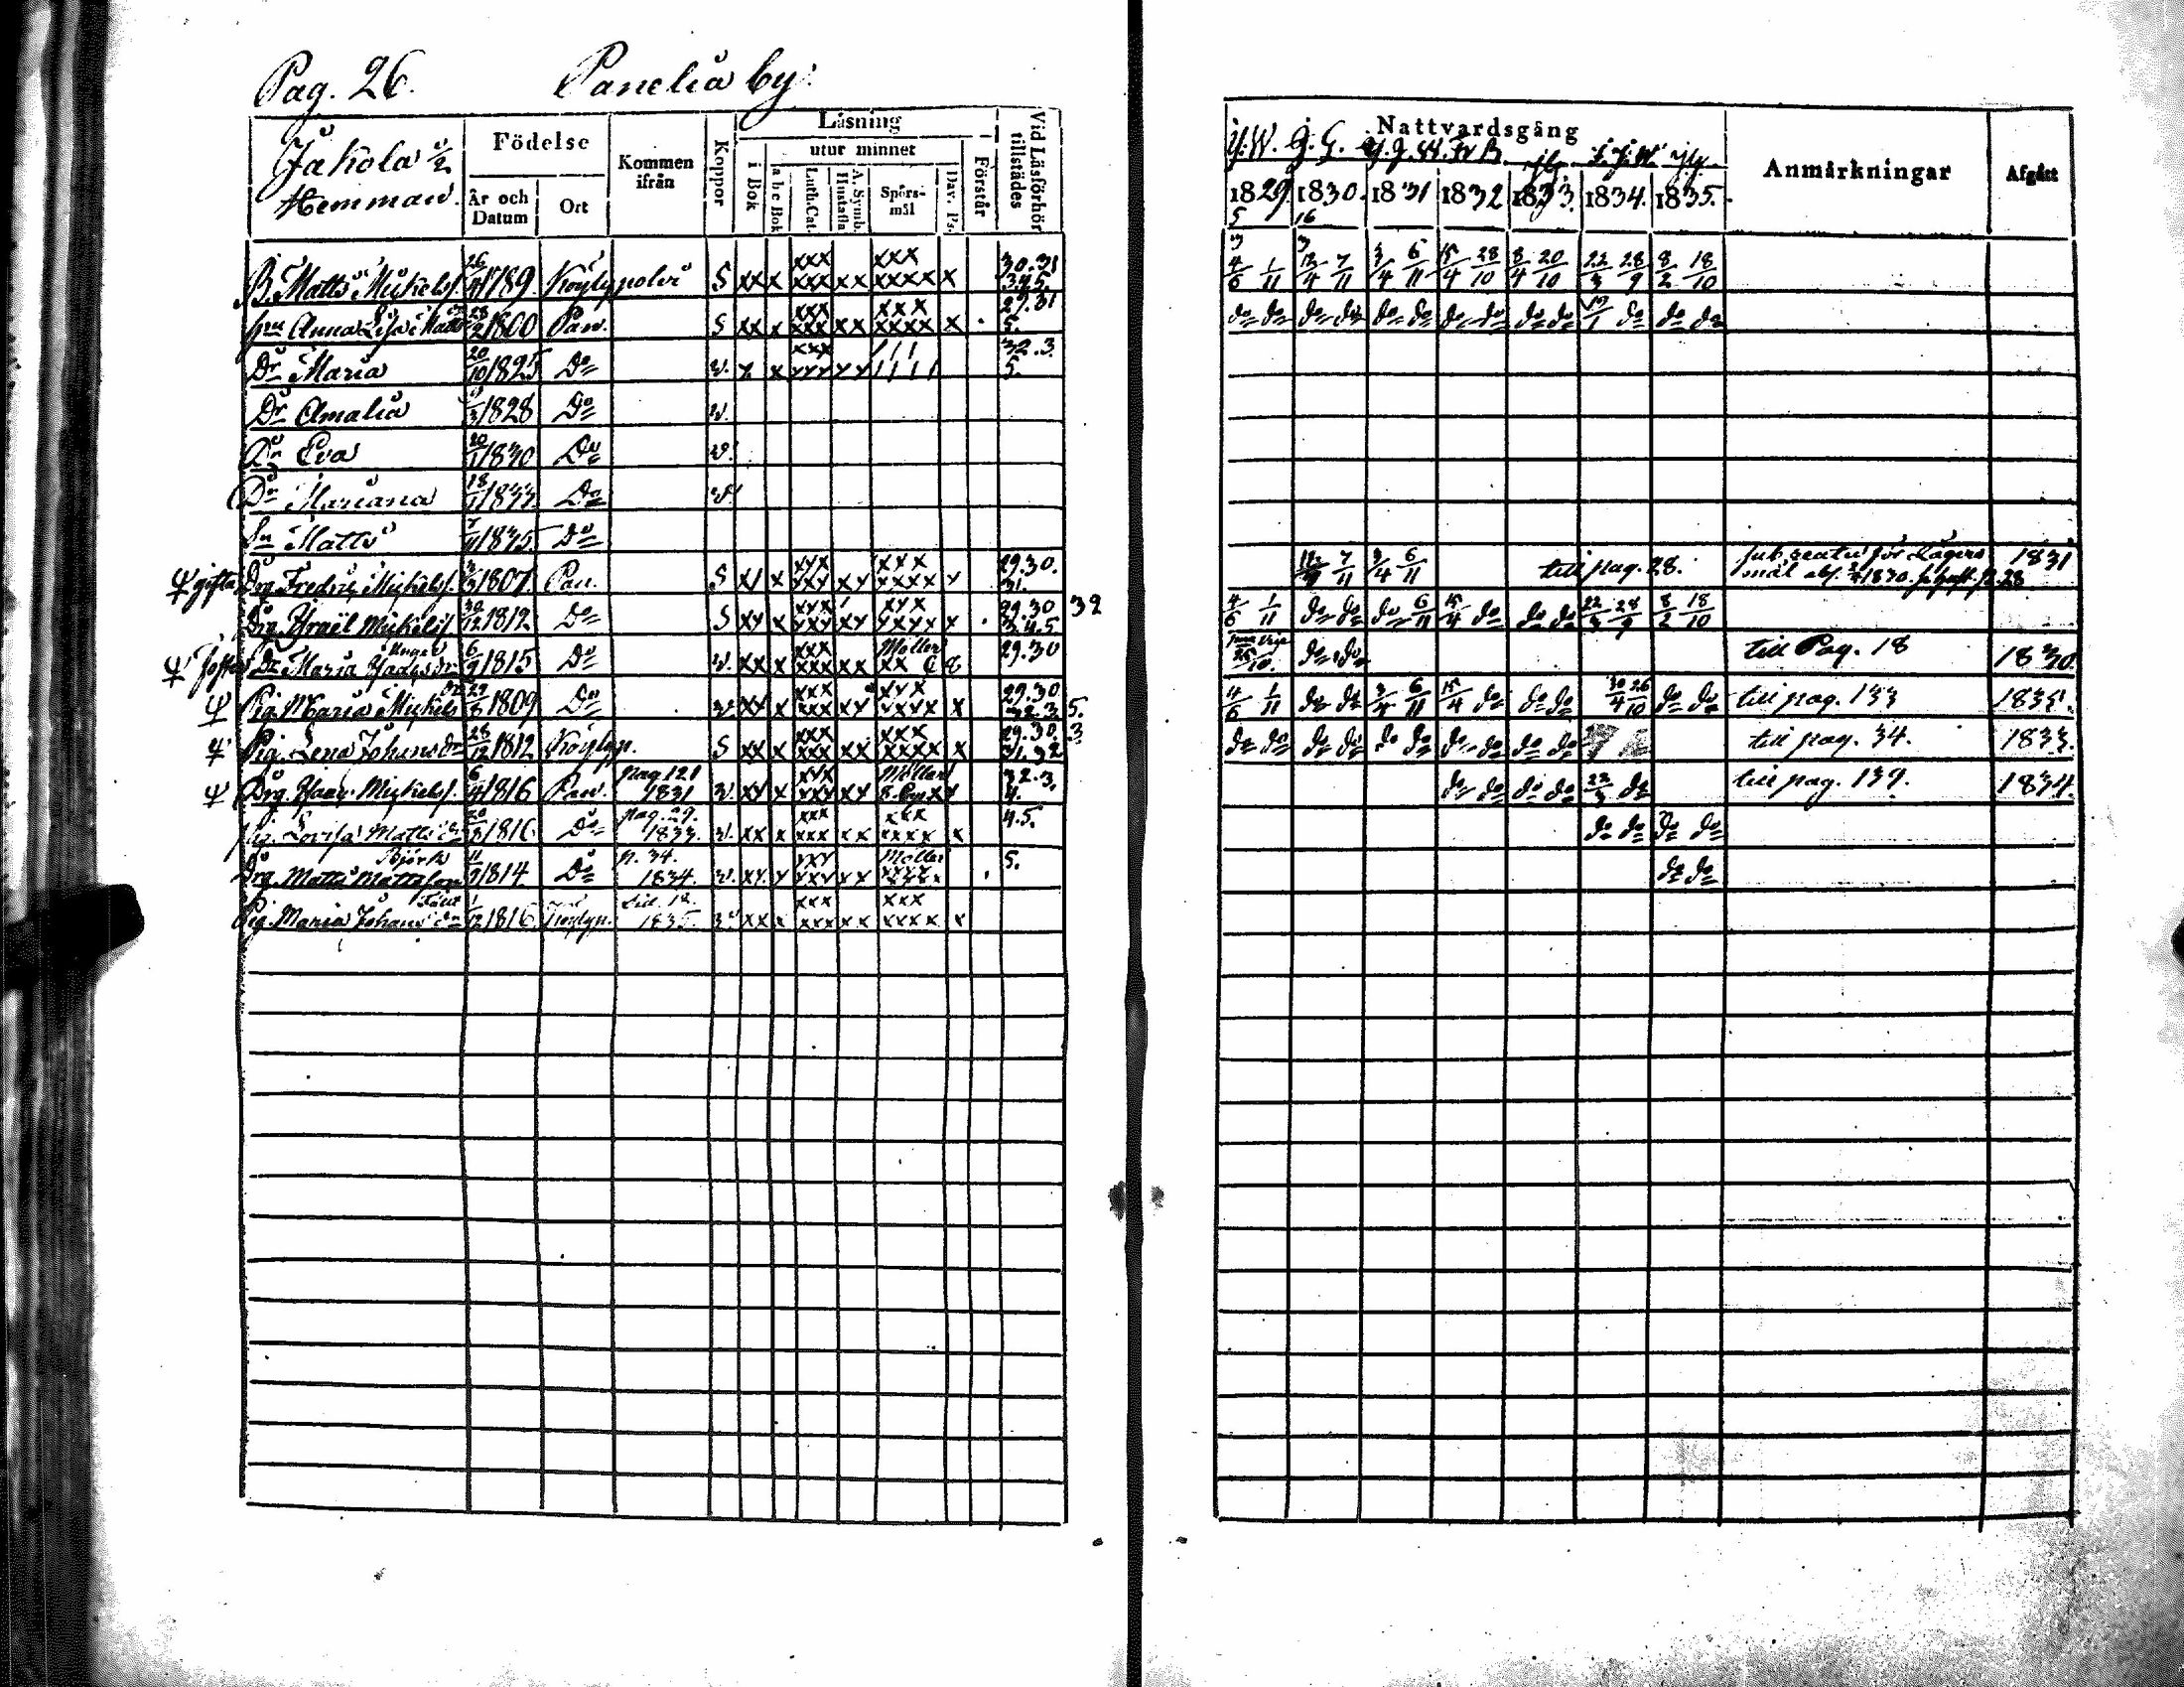 Pag. 26. Panelia by.
Jakola 1/2 Hemman.
Födelse
År och Datum
Ort
Kommen ifrån
Koppor
Läsning
utur minnet
i Bok
a b c Bok
Luth. Cat.
A. Symb. Hustafla
Spörsmål
Dav. Ps.
Förstår
Vid Läsförhör tillstädes
Nattvardsgång
Anmärkningar
Afgått
1829. 1830. 1831 1832 1833. 1834. 1835.
B. Matts Mickelss. 1789. Köyliypolvi S xx x xxx xxx xx xxx xxxx x 30.31 4/6 1/11 12/4 7/11 3/4 6/11 15/4 28/10 8/4 20/10 22/3 28/9 8/2 18/10
hu Anna Lisa Matts dr 28/2 1800 Pan. S xx x xxx xxx xx xxx xxxx x 29.31 5. do do do do do do do do do do 19/1 do do do
Dr Maria 20/10 1825 Do v. x x xxx xxx xx 32.3 5.
Dr Amalia 1828 Do v.
Dr Eva 20/1 1830 Do v.
Dr Mariana 18/1 1833 Do v
Sn Matts 1835 Do
gift Drg. Fredric Mickelss. 1807. Pan. S xx x xxx xxx xx xxx xxxx x 29.30. 31. 7/11 3/4 6/11 till pag. 28. 1831
Drg. Israël Mickelss. 30/12 1812. Do S xx x xxx xxx xx xxx xxxx x 29.30 32 3.4.5. 4/6 1/11 do do do 6/11 15/4 do do do 22/3 28/9 8/2 18/10
Maria 6/9 1815 Do v. xx x xxx xxx xx Möller 29.30 25/10. do do till Pag. 18 1830.
Pig. Maria Mickels dr 29/8 1809 Do v. xx x xxx xxx xx xxx xxxx x 29.30 32.3. 5. 4/6 1/11 do do 3/4 6/11 15/4 do do do 30/4 26/10 do do till pag. 133 1835.
Pig. Lena Johans dr 28/12 1812 Köylyp. S xx x xxx xxx xx xxx xxxx x 29.30. 3 31.32 do do do do do do do do do do till pag. 34. 1833.
Drg. Isaac Mickelss. 6/4 1816 Pan. pag. 121 1831 v. xx x xxx xxx xx Möller 32.3. 4. do do do do 22/3 do till pag. 139. 1834.
Pig. Lovisa Matts dr 1816 Do pag. 29. 1833. v. xx x xxx xxx xx xxx xxxx x 4.5. do do do do
Drg. Matts Mattsson Björk 1814 Do p. 34. 1834. v. xx x xxx xxx xx Möller xxxx 5. do do
Pig. Maria Johans dr 1/12 1816. Köylyp. 1835. v xx x xxx xxx xx xxx xxxx x